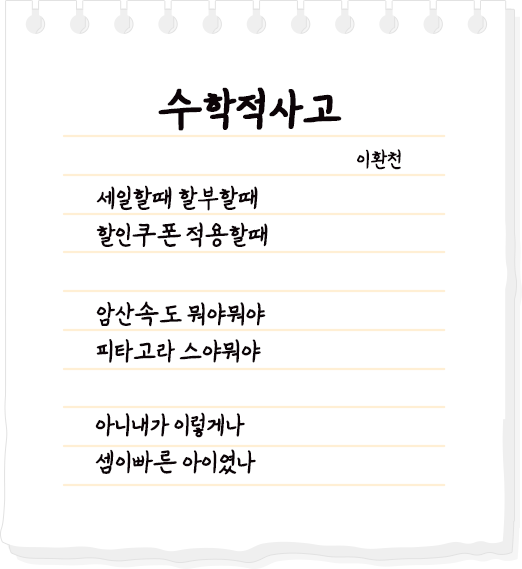 수학적사고
이환천
세일할때 할부할때
할인쿠폰 적용할때
암산속도 뭐야뭐야
피타고라 스야뭐야
아니내가 이렇게나
셈이빠른 아이였나